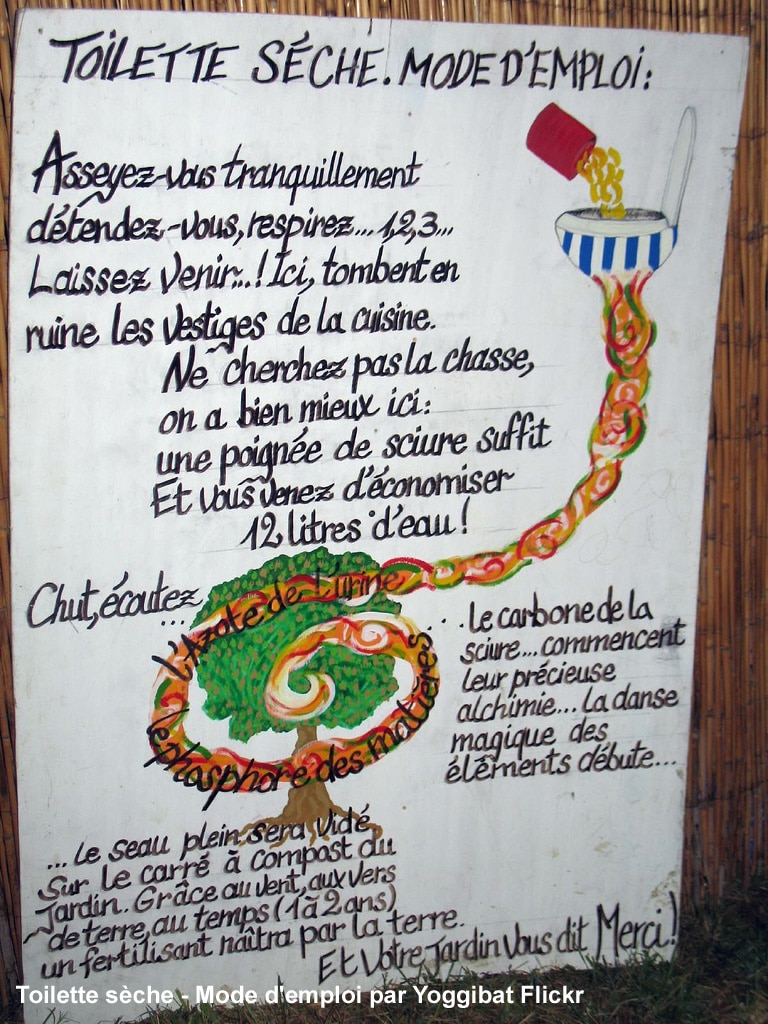 TOILETTE SÉCHE. MODE D'EMPLOI:
Asseyez-vous tranquillement
détendez-vous, respirez... 1,2,3...
Laissez venir...! Ici, tombent en
ruine les vestiges de la cuisine.
Ne cherchez pas la chasse,
on a bien mieux ici:
une poignée de sciure suffit
Et vous venez d'économiser
12 litres d'eau!
Chut, écoutez
...
l'Azote de l'urine
le phosphore des matières
... Le carbone de la
sciure... commencent
leur précieuse
alchimie... la danse
magique des
éléments débute...
... Le seau plein sera vidé
Sur le carré à compost du
Jardin. Grâce au vent, aux vers
de terre, au temps (1 à 2 ans)
un fertilisant naîtra par la terre.
Et Votre Jardin Vous dit Merci!
Toilette sèche - Mode d'emploi par Yoggibat Flickr